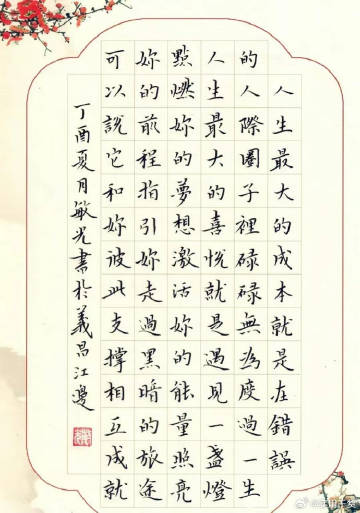 人生最大的成本就是在錯誤
的人際圈子裡碌碌無為度過一生
人生最大的喜悅就是遇見一盞燈
點燃妳的夢想激活妳的能量照亮
妳的前程指引妳走過黑暗的旅途
可以說它和妳彼此支撐相互成就
丁酉夏月敏光書於義昌江邊